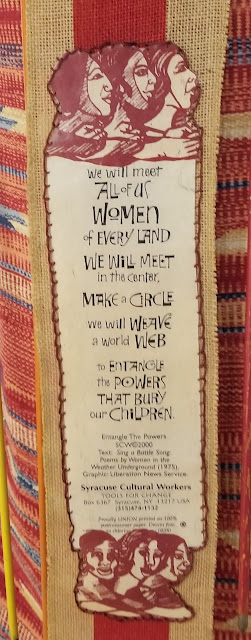 we will meet
ALL of US
WOMEN
of EVERY LAND
WE WILL MEET
in the center,
MAKE a CIRCLE
we will WEAVE
a world WEB
to ENTANGLE
the POWERS
THAT BURY
our CHILDREN.
Entangle The Powers
SCW©2000
Text: Sing a Battle Song:
Poems by Women in the
Weather Underground (1975).
Graphic: Liberation News Service.
Syracuse Cultural Workers
TOOLS FOR CHANGE
Box 6367 Syracuse, NY 13217 USA
(315)474-1132
Proudly UNION printed on 100%
postconsumer paper.